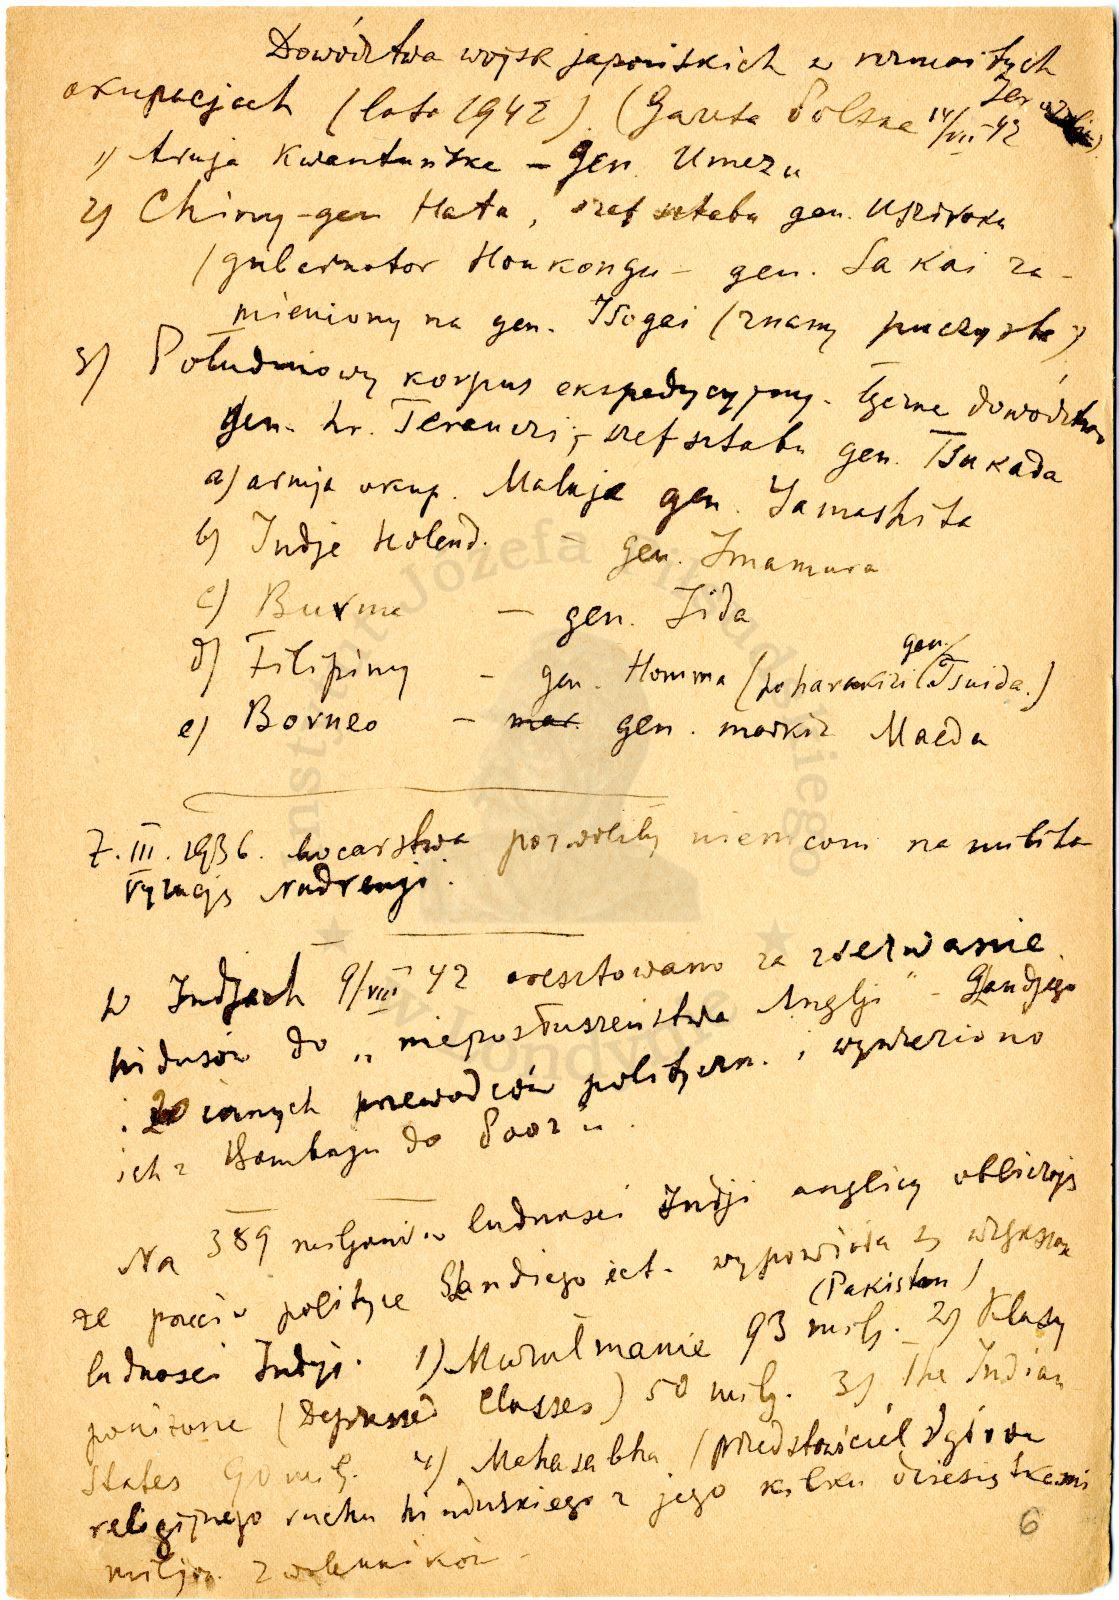 Dowództwa wojsk japońskich w rozmaitych
okupacjach (lato 1942). (Gazeta Polska 14/VII-42 Jerozolima)
1) Armja Kwantuńska – gen. Umezu
2) Chiny – gen Hata, szef sztabu gen. Usziroku
(gubernator Honkongu – gen. Sakai za-
mieniony na gen. Isogai (znany puczysta)
3) Południowy korpus ekspedycyjny. Łączne dowództwo
gen. hr. Terauczi, szef sztabu gen. Tsukada
a) armja okup. Malaje gen. Yamashita
b) Indje Holend. – gen. Imamura
c) Burma – gen. Iida
d) Filipiny – gen. Homma (po harakiri gen. Tsuida.)
e) Borneo – mar. gen. markiz Maeda
7.III.1936. mocarstwa pozwoliły niemcom na milita
ryzację Nadrenji.
w Indjach 9/VIII 42 aresztowano za wzywanie
hindusów do "nieposłuszeństwa Anglji" – Gandjego
i 20 innych przewodców polityczn. i wywieziono
ich z Bombaju do Poona.
Na 389 miljonów ludności Indji anglicy obliczają
że przeciw polityce Gandiego ect. wypowiada się większość
ludności Indyj. 1) Muzułmanie 93 milj. (Pakistan) 2) Klasy
poniżone (Depressed Classes) 50 milj. 3) The Indian
States 90 milj. 4) Mahasabha (przedstawiciel
religijnego ruchu hinduskiego z jego kilku dziesiątkami
miljon. zwolenników –
6
Instytut Józefa Piłsudskiego
w Londynie